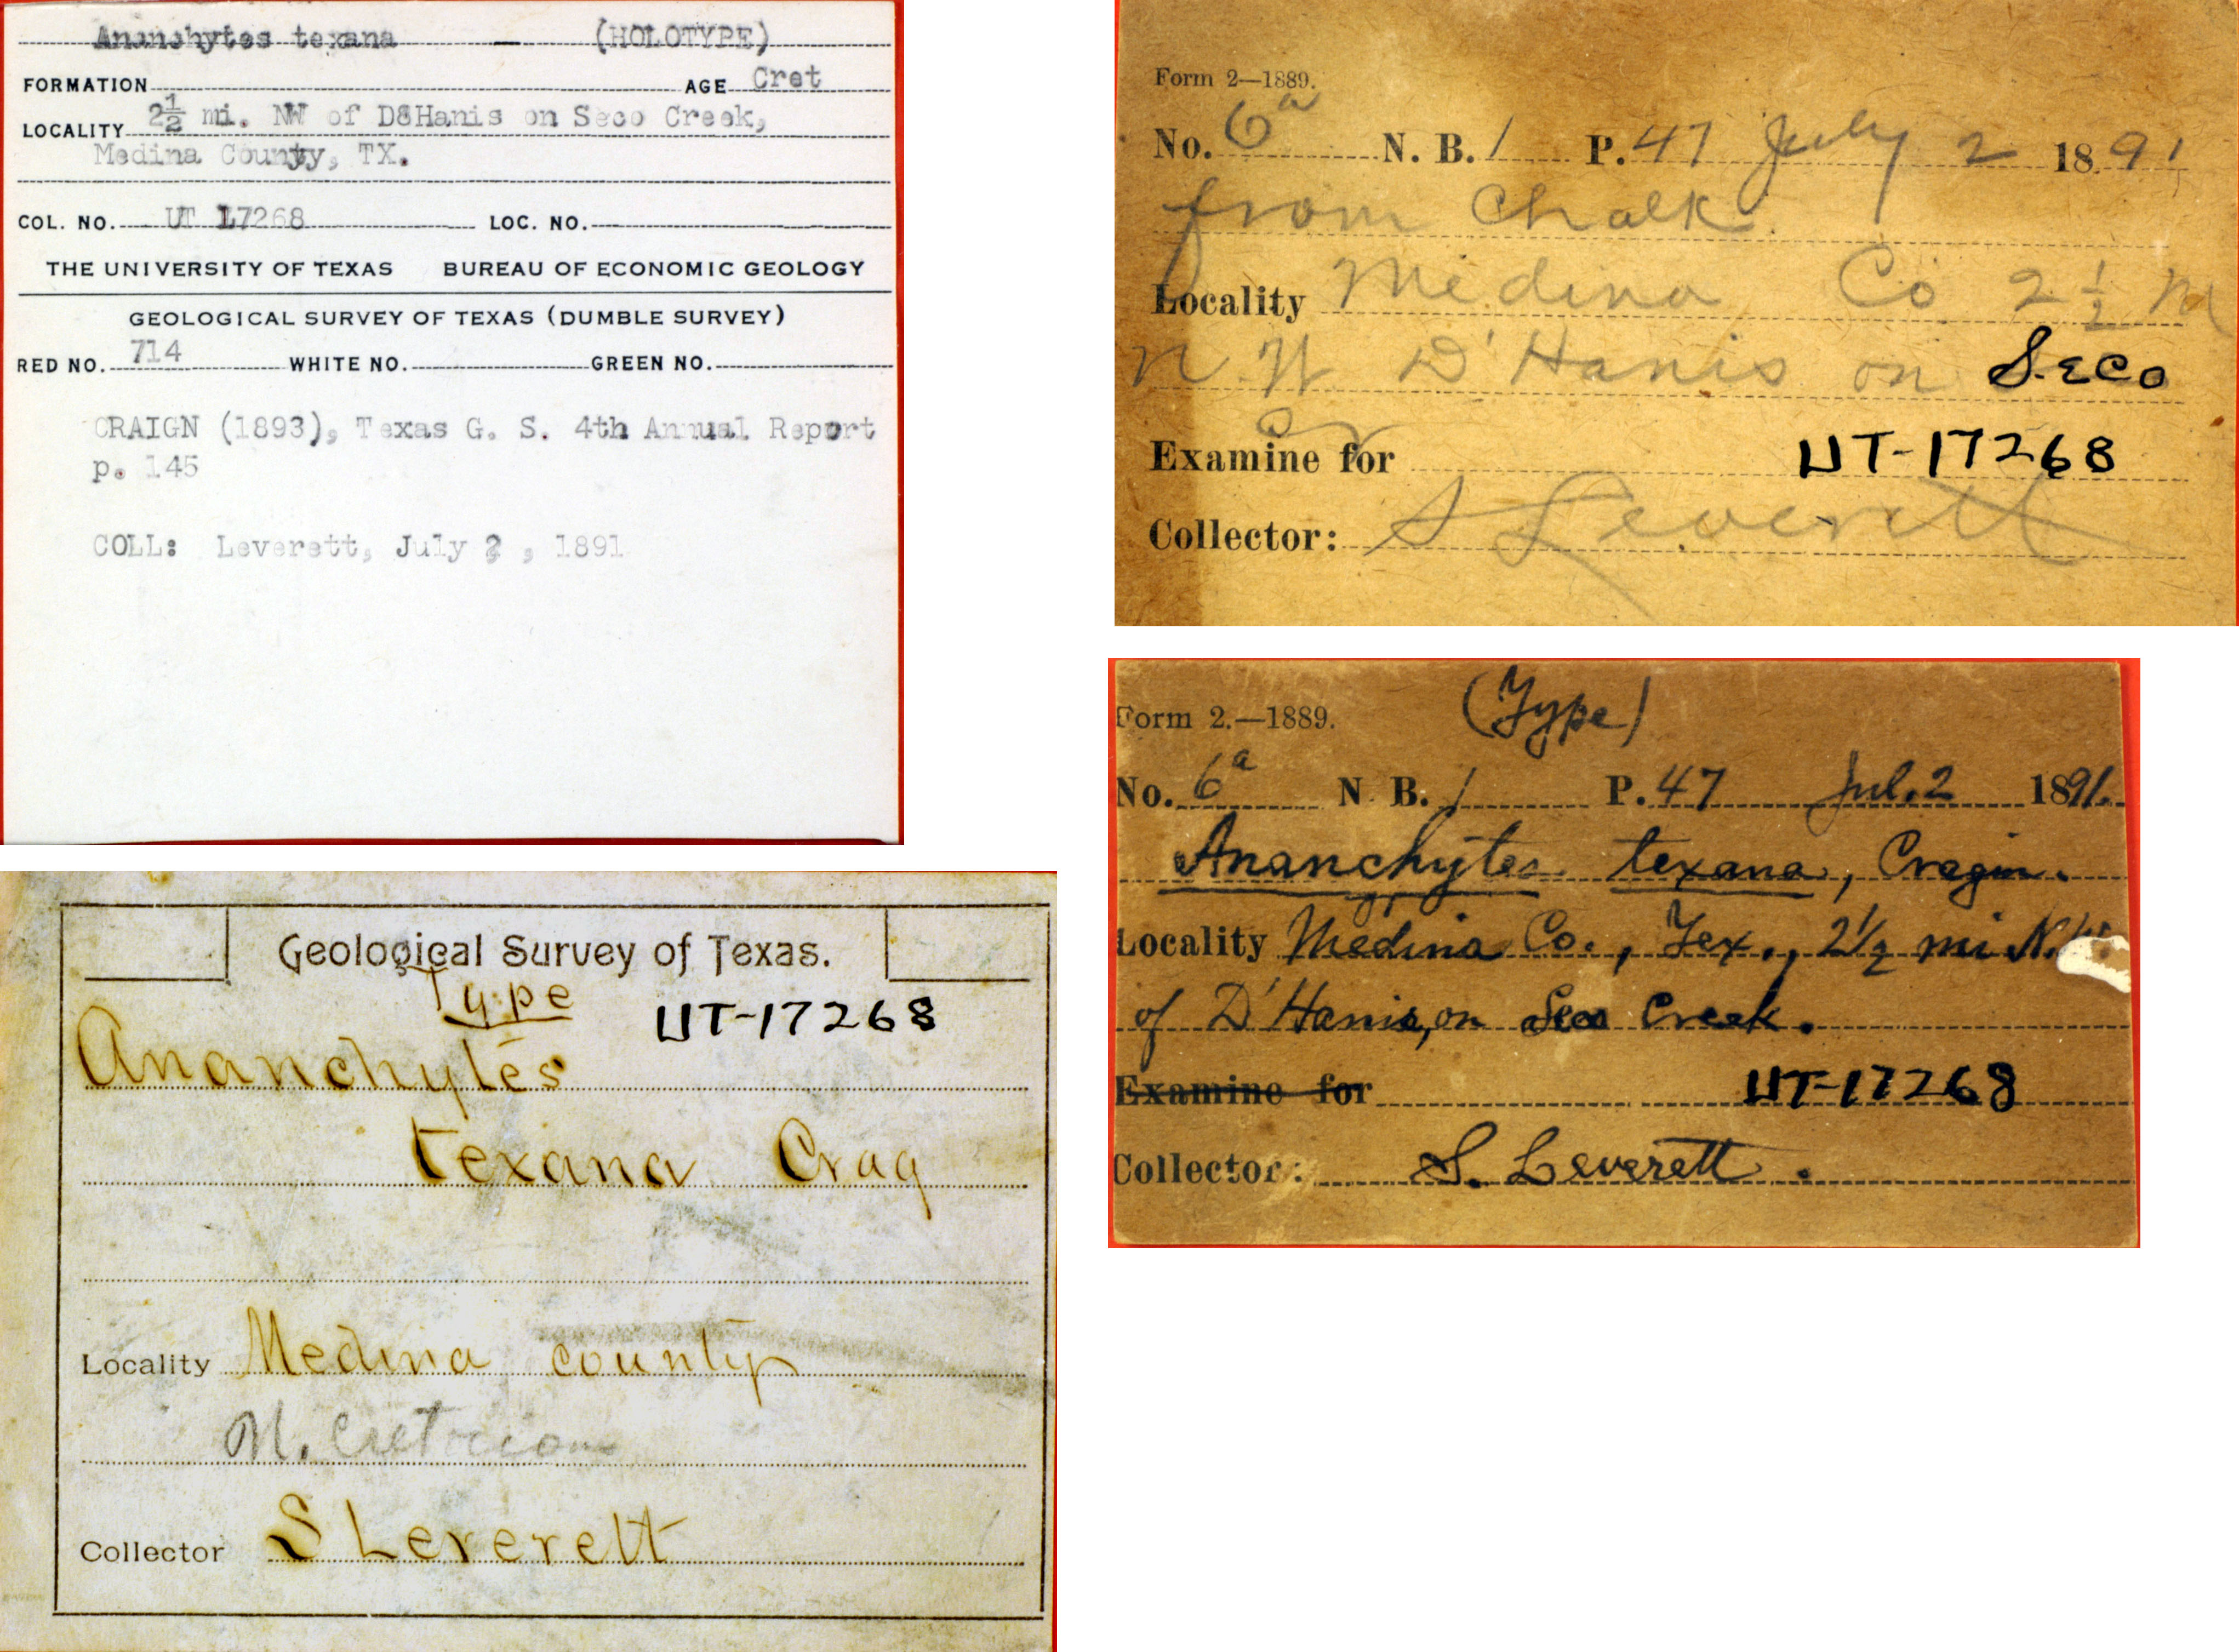 Ananchytes texana — (HOLOTYPE)
FORMATION AGE Cret
LOCALITY 2½ mi. NW of D8Hanis on Seco Creek,
Medina County, TX.
COL. NO. UT 17268 LOC. NO.
THE UNIVERSITY OF TEXAS BUREAU OF ECONOMIC GEOLOGY
GEOLOGICAL SURVEY OF TEXAS (DUMBLE SURVEY)
RED NO. 714 WHITE NO. GREEN NO.
CRAIGN (1893), Texas G. S. 4th Annual Report
p. 145
COLL: Leverett, July 2 , 1891
Form 2—1889.
No. 6a N. B. 1 P. 47 July 2 1891
from Chalk.
Locality Medina Co 2½ m
N. W D'Hanis on Seco
Cr
Examine for UT-17268
Collector: S Leverett
(Type)
Form 2.—1889.
No. 6a N B. 1 P. 47 Jul. 2 1891.
Ananchytes texana, Cragin.
Locality Medina Co., Tex., 2½ mi N.W.
of D'Hanis, on Seco Creek.
Examine for UT-17268
Collector: S. Leverett.
Geological Survey of Texas.
Type
UT-17268
Ananchytes
texana Crag
Locality Medina county
Collector S Leverett